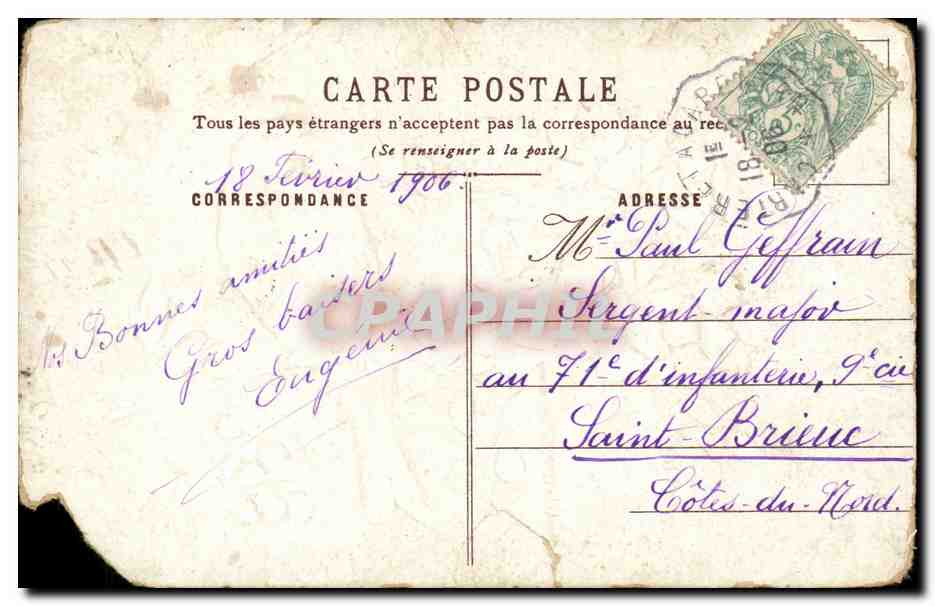 CARTE POSTALE
Tous les pays étrangers n'acceptent pas la correspondance au rec
(Se renseigner à la poste)
18 Février 1906.
CORRESPONDANCE
Nos Bonnes amitiés
Gros baisers
Eugenie
ADRESSE
Mr Paul Geffrain
Sergent-major
au 71e d'infanterie, 9e cie
Saint-Brieuc
Côtes-du-Nord.
18
06
CPAPHIL